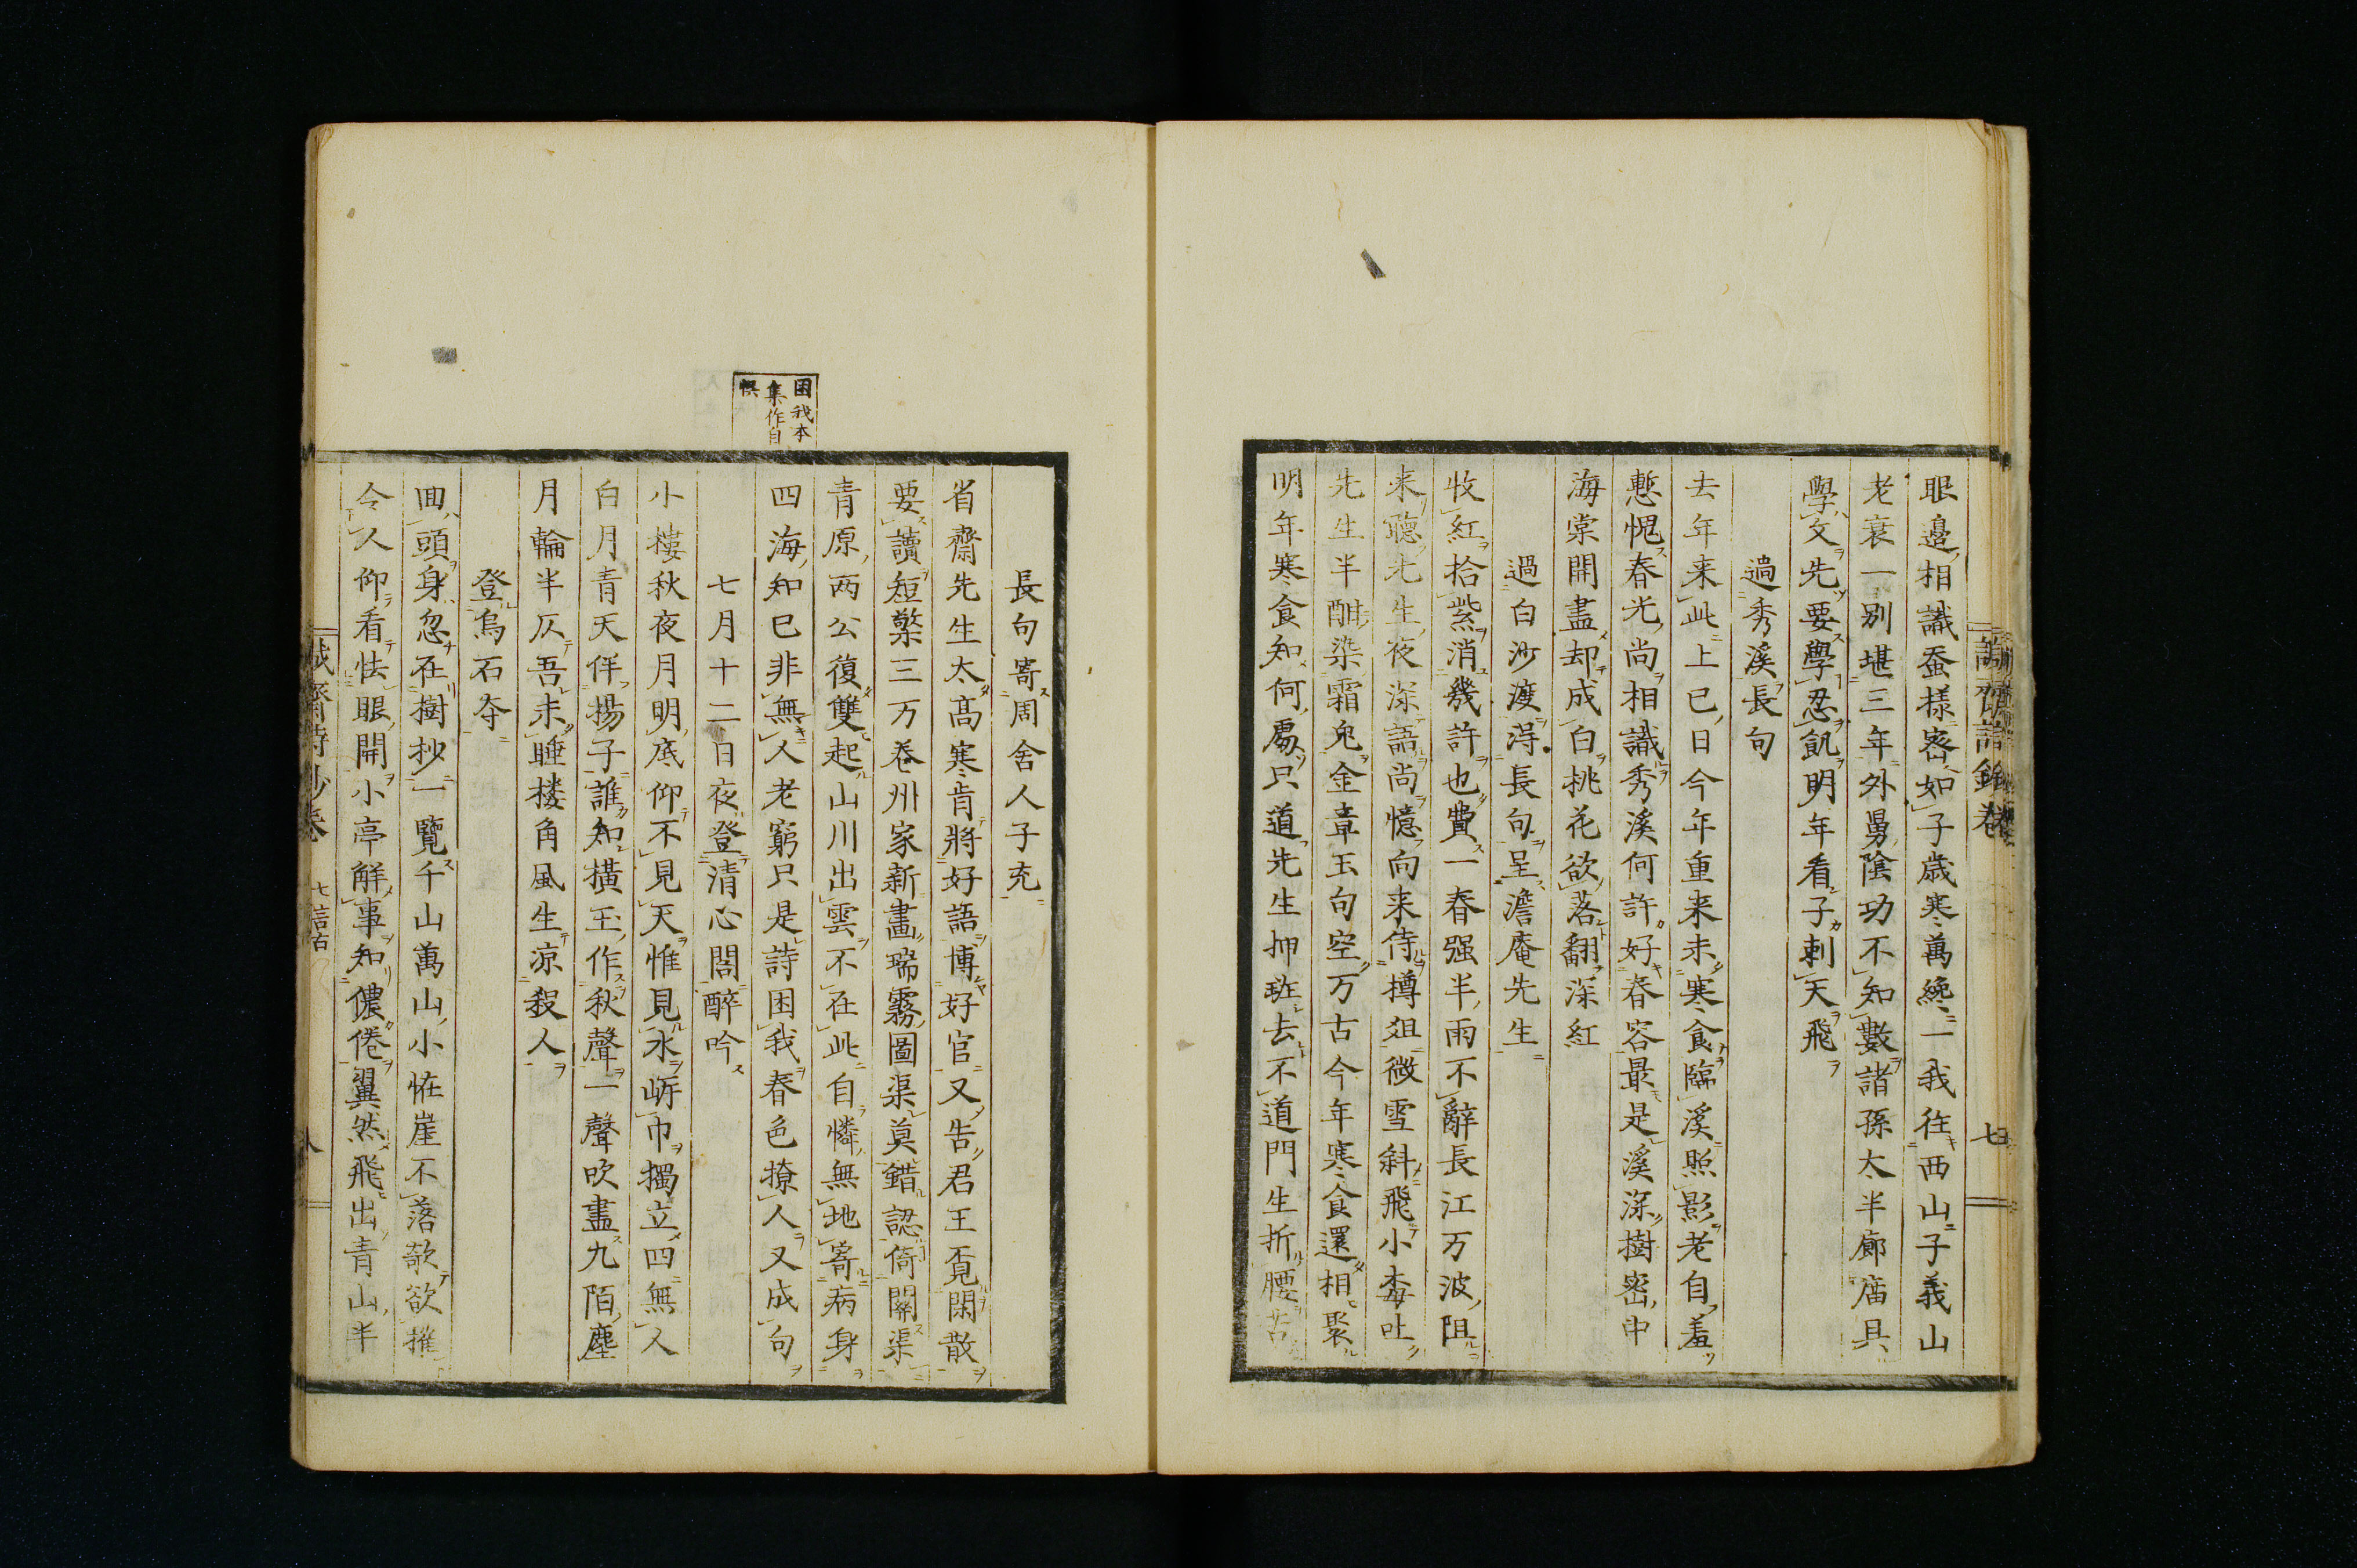 眼邉相識蚕様密如子歳寒萬繞一我徃西山子義山
老衰一别堪三年外舅陰功不知數諸孫太半廊庿具
學文先要學忍飢明年看子刺天飛
過秀溪長句
去年来此上巳日今年重来未寒食臨溪照影老自羞
慙愧春光尚相識秀溪何許好春容最是溪深樹密中
海棠開盡却成白桃花欲落翻深紅
過白沙渡淂長句呈澹庵先生
收紅拾紫消幾許也費一春强半雨不辭長江万波阻
来聽先生夜深語尚憶向来侍樽俎微雪斜飛小李吐
先生半酣染霜兔金章玉句空万古今年寒食還相聚
明年寒食知何處只道先生押班去不道門生折腰苦
七
長句寄周舍人子充
省齋先生太高寒肯將好語博好官又告君王覔閑散
要讀短檠三万卷州家新畫瑞霧圖渠莫錯認倚闌渠
青原两公復雙起山川出雲不在此自憐無地寄病身
四海知巳非無人老窮只是詩困我春色撩人又成句
困我本
集作自
惧
七月十二日夜登清心閣醉吟
小樓秋夜月明底仰不見天惟見水岸巾獨立四無人
白月青天佯揚子誰知横玉作秋聲一聲吹盡九陌塵
月輪半仄吾未睡楼角風生凉殺人
登烏石夺
囬頭身忽在樹抄一覽千山萬山小恠崖不落欹欲摧
令人仰看怯眼開小亭解事知儂倦翼然飛出青山半
誠齋詩抄卷 七言古 八